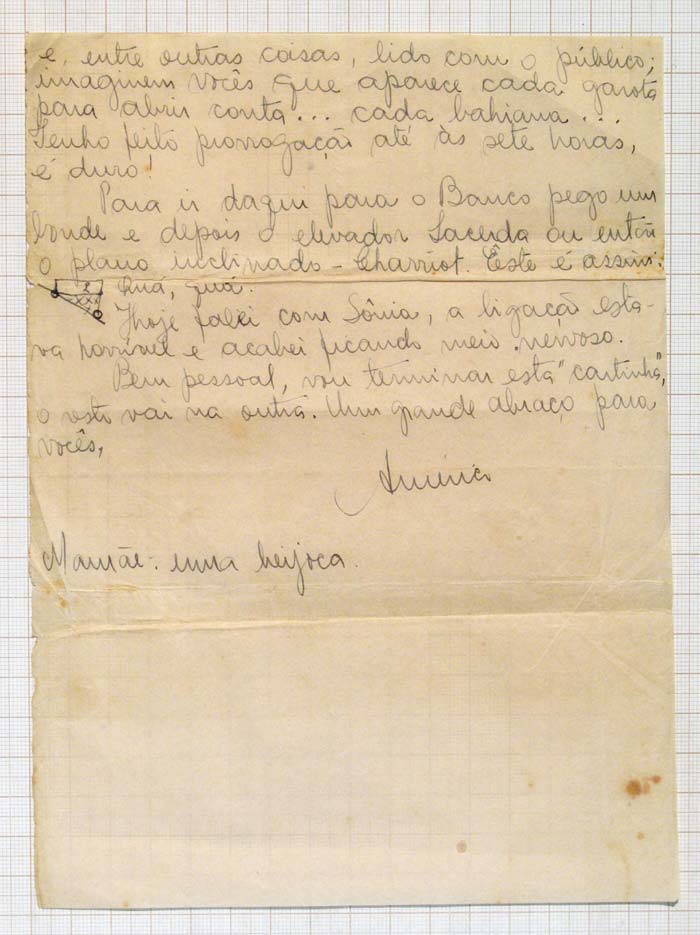 e, entre outras coisas, lido com o público;
imaginem vocês que aparece cada garota
para abrir conta... cada bahiana...
Tenho feito prorrogação até às sete horas,
é duro!
Para ir daqui para o Banco pego um
bonde e depois o elevador Lacerda ou então
o plano inclinado - Charriot. Êste é assim:
Quá, quá.
Hoje falei com Sônia, a ligação esta-
va horrível e acabei ficando meio nervoso.
Bem pessoal, vou terminar esta "cartinha",
o resto vai na outra. Um grande abraço para
vocês,
Américo
Mamãe: uma beijoca.